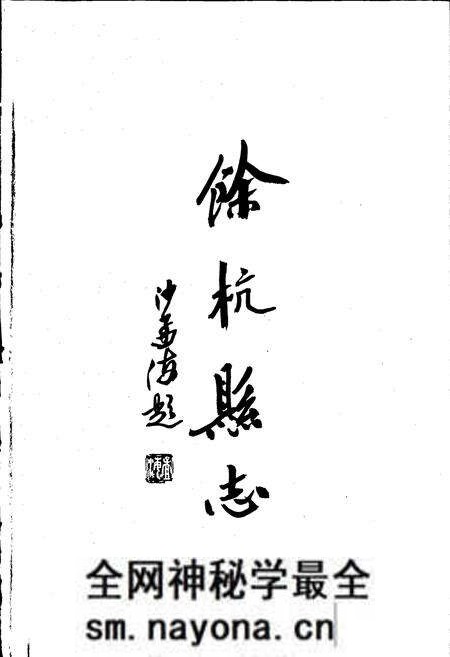 餘杭縣志
沙孟海題
全网神秘学最全
sm.nayona.cn